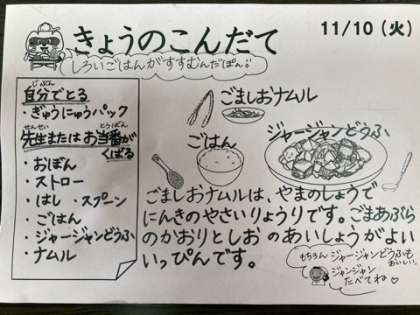 きょうのこんだて
11/10 (火)
しろいごはんがすすむんだぽん♪
自分でとる
じぶん
・ぎゅうにゅうパック
先生または お当番が
せんせい とうばん
くばる
・おぼん
・ストロー
・はし ・スプーン
・ごはん
・ジャージャンどうふ
・ナムル
ごましおナムル
ごはん
ジャージャンどうふ
ごましおナムルは、やまのしょうで
にんきのやさいりょうりです。ごまあぶら
のかおりとしおのあいしょうがよい
いっぴんです。
もちろん ジャージャンどうふも
おいしい。
ジャンジャン
たべてね♡